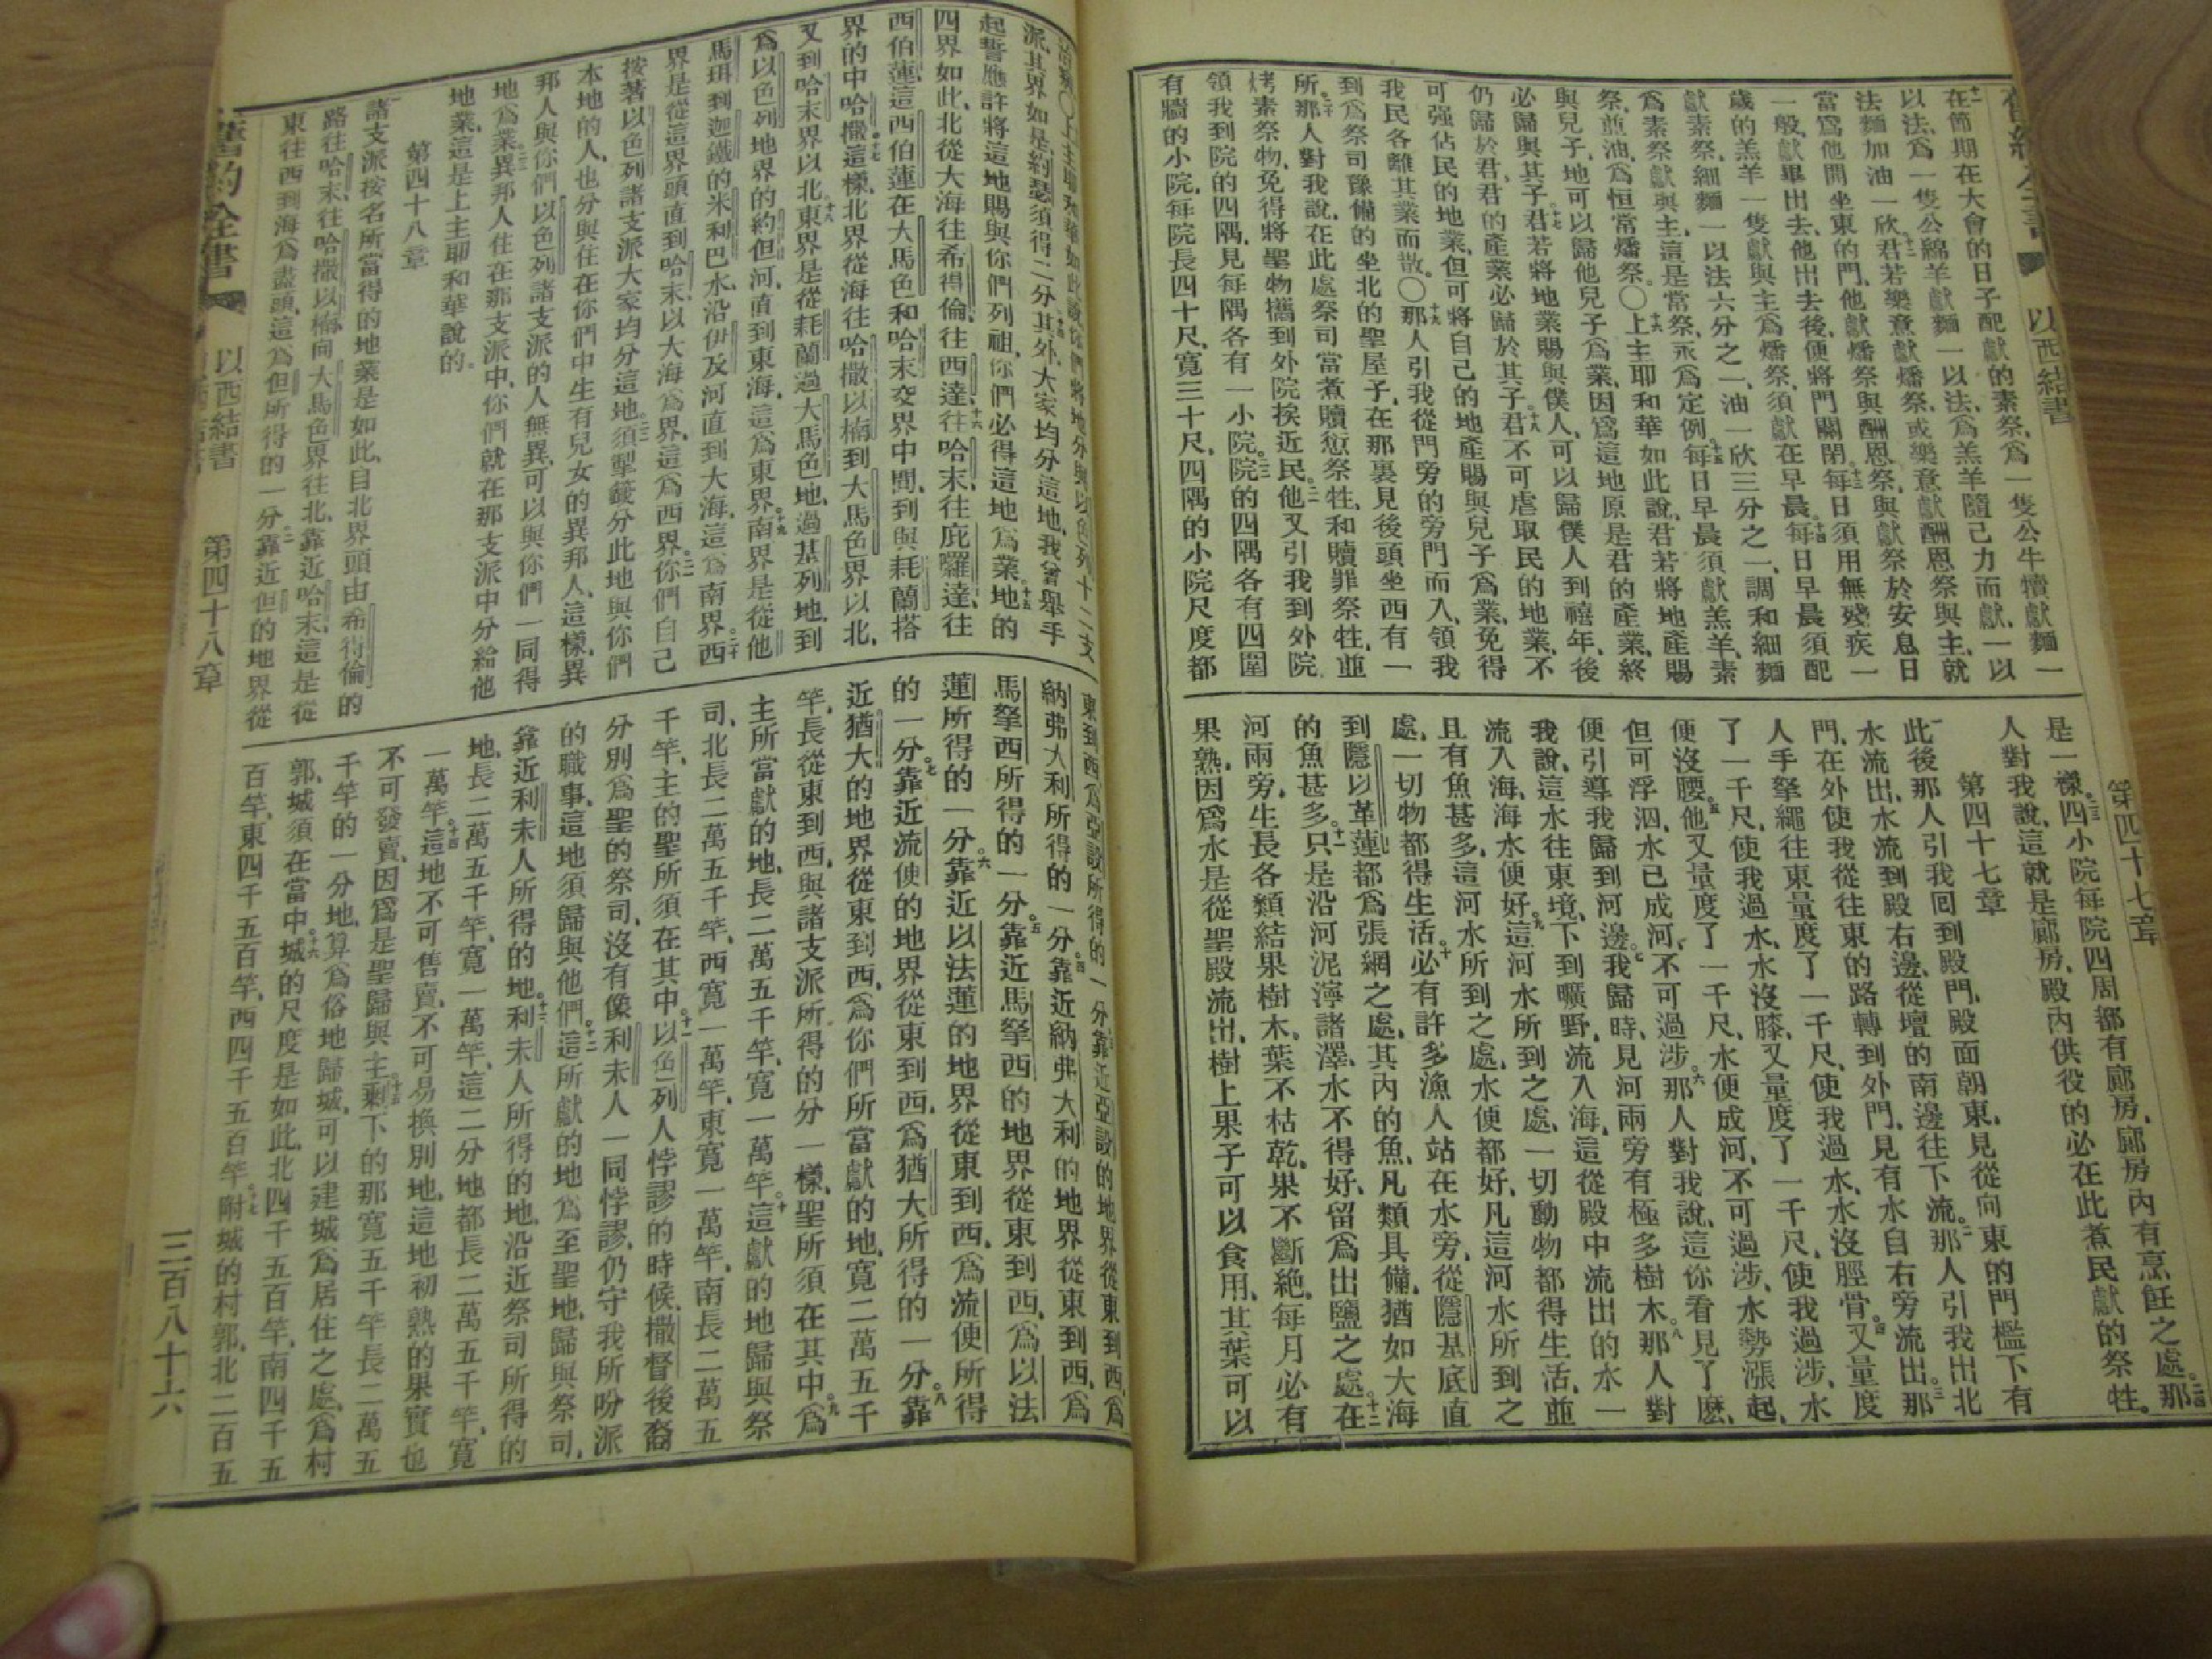 以西結書
第四十七章
在節期在大會的日子配獻的素祭、爲一隻公牛犢獻麵一
以法、爲一隻公綿羊獻麵一以法、爲羔羊隨己力而獻、一以
法麵加油一欣。君若樂意獻燔祭、或樂意獻酬恩祭與主、就
當爲他開坐東的門、他獻燔祭與酬恩祭、與獻祭於安息日
一般、獻畢出去、他出去後、便將門關閉。每日須用無殘疾一
歲的羔羊一隻獻與主爲燔祭、須獻在早晨。每日早晨須配
獻素祭、細麵一以法六分之一、油一欣三分之一、調和細麵
爲素祭獻與主、這是常祭、永爲定例。每日早晨須獻羔羊、素
祭、並油、爲恒常燔祭。〇上主耶和華如此說、君若將地產賜
與兒子、地可以歸他兒子爲業、因爲這地原是君的產業、終
必歸與其子。君若將地業賜與僕人、可以歸僕人到禧年、後
仍歸於君、君的產業必歸於其子。君不可虐取民的地業、不
可强佔民的地業、但可將自己的地產賜與兒子爲業、免得
我民各離其業而散。〇那人引我從門旁的旁門而入、領我
到爲祭司豫備的坐北的聖屋子、在那裏見後頭坐西有一
所。那人對我說、在此處祭司當煮贖愆祭牲、和贖罪祭牲、並
烤素祭物、免得將聖物攜到外院挨近民。他又引我到外院
領我到院的四隅、見每隅各有一小院。院的四隅各有四圍
有牆的小院、每院長四十尺、寬三十尺、四隅的小院尺度都
是一樣。四小院每院四周都有廊房、廊房內有烹飪之處。那
人對我說、這就是廊房、殿內供役的必在此煮民獻的祭牲。
第四十七章
此後那人引我回到殿門、殿面朝東、見從向東的門檻下有
水流出、水流到殿右邊、從壇的南邊往下流。那人引我出北
門、在外使我從往東的路轉到外門、見有水自右旁流出。那
人手拏繩往東量度了一千尺、使我過水、水沒脛骨。又量度
了一千尺、使我過水、水沒膝、又量度了一千尺、使我過涉、水
便沒腰。他又量度了一千尺、水便成河、不可過涉、水勢漲起、
但可浮泅、水已成河、不可過涉。那人對我說、這你看見了麽、
便引導我歸到河邊。我歸時、見河兩旁有極多樹木。那人對
我說、這水往東境、下到曠野、流入海、這從殿中流出的水一
流入海、海水便好。這河水所到之處、一切動物都得生活、並
且有魚甚多、這河水所到之處、水便都好、凡這河水所到之
處、一切物都得生活。必有許多漁人站在水旁、從隱基底直
到隱以革蓮、都爲張網之處、其內的魚、凡類具備、猶如大海
的魚甚多。只是沿河泥濘諸澤、水不得好、留爲出鹽之處。在
河兩旁、生長各類結果樹木、葉不枯乾、果不斷絕、每月必有
果熟、因爲水是從聖殿流出、樹上果子可以食用、其葉可以
派、其界如是、約瑟須得二分、其外、大家均分這地、我曾舉手
起誓應許將這地賜與你們列祖、你們必得這地爲業。地的
四界如此、北從大海往希得倫、往西達、往哈末、往庇囉達、往
西伯蓮、這西伯蓮在大馬色和哈末交界中間、到與耗蘭搭
界的中哈撒。這樣、北界從海往哈撒以楠到大馬色界以北、
又到哈末界以北、東界是從耗蘭過大馬色地、過基列地、到
爲以色列地界的約但河、直到東海、這爲東界。南界是從他
馬珥到迦鐵的米利巴水、沿伊及河直到大海、這爲南界。西
界是從這界頭直到哈末、以大海爲界、這爲西界。你們自己
按著以色列諸支派大家均分這地。須掣籤分此地與你們
本地的人、也分與住在你們中生有兒女的異邦人、這樣異
邦人與你們以色列諸支派的人無異、可以與你們一同得
地爲業。異邦人住在那支派中、你們就在那支派中分給他
地業、這是上主耶和華說的。
第四十八章
諸支派按名所當得的地業是如此、自北界頭由希得倫的
路往哈末、往哈撒以楠向大馬色界往北、靠近哈末、這是從
東往西到海爲盡頭、這爲但所得的一分。靠近但的地界從
東到西、爲亞設所得的一分。靠近亞設的地界從東到西、爲
納弗大利所得的一分。靠近納弗大利的地界從東到西、爲
馬拏西所得的一分。靠近馬拏西的地界從東到西、爲以法
蓮所得的一分。靠近以法蓮的地界從東到西、爲流便所得
的一分。靠近流便的地界從東到西、爲猶大所得的一分。靠
近猶大的地界從東到西、爲你們所當獻的地、寬二萬五千
竿、長從東到西、與諸支派所得的分一樣、聖所須在其中、爲
主所當獻的地、長二萬五千竿、寬一萬竿。這獻的地歸與祭
司、北長二萬五千竿、西寬一萬竿、東寬一萬竿、南長二萬五
千竿、主的聖所須在其中。以色列人悖謬的時候、撒督後裔
分別爲聖的祭司、沒有像利未人一同悖謬、仍守我所吩派
的職事、這地須歸與他們。這所獻的地爲至聖地、歸與祭司、
靠近利未人所得的地。利未人所得的地、沿近祭司所得的
地、長二萬五千竿、寬一萬竿、這二分地都長二萬五千竿、寬
一萬竿。這地不可售賣、不可易換別地、這地初熟的果實也
不可發賣、因爲是聖歸與主。剩下的那寬五千竿長二萬五
千竿的一分地、算爲俗地歸城、可以建城爲居住之處、爲村
郭、城須在當中。城的尺度是如此、北四千五百竿、南四千五
百竿、東四千五百竿、西四千五百竿。附城的村郭、北二百五
以西結書
第四十八章
三百八十六